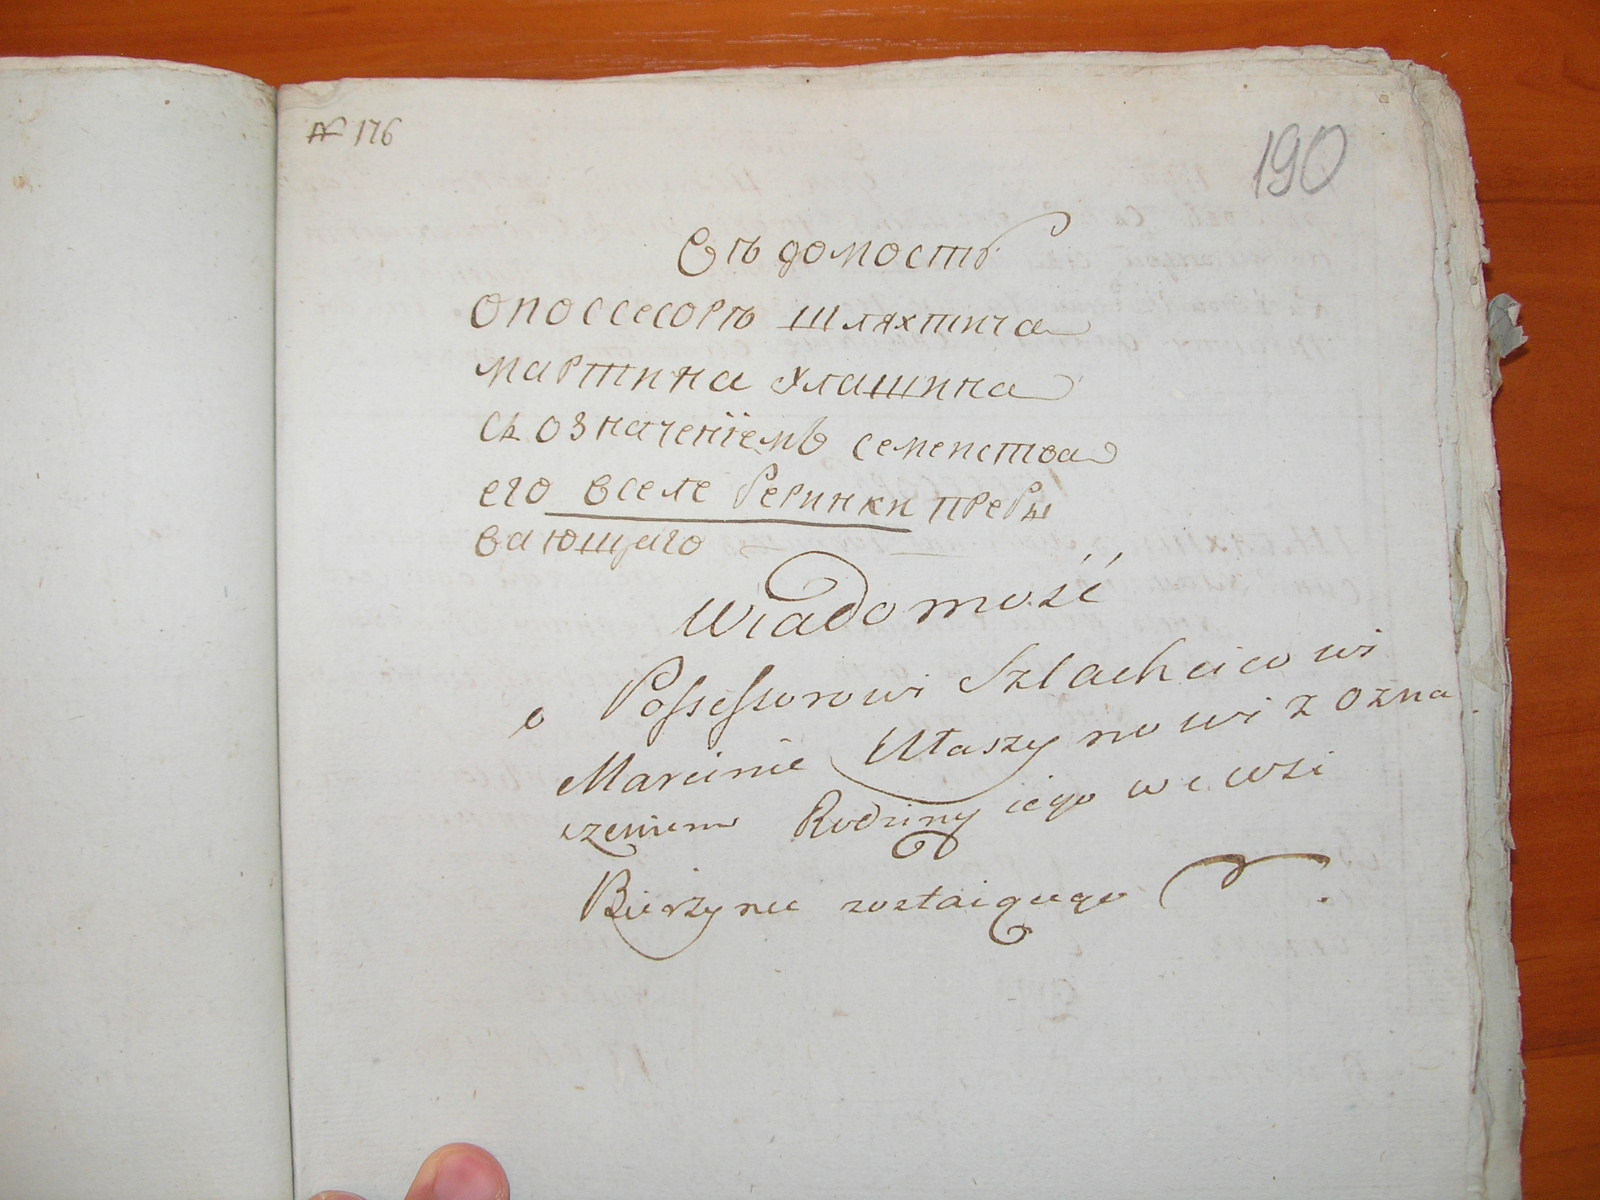 № 176
190
Вѣдомость
опоссесорѣ шляхтича
мартина Улашина
съ означенїемъ семепства
его вселе Беринки пребы
вающаго
Wiadomość
o Possessorowi Szlachcicowi
Marcinie Ułaszynowi z ozna
czeniem Rodziny iego we wsi
Bierzynce zostaiącego